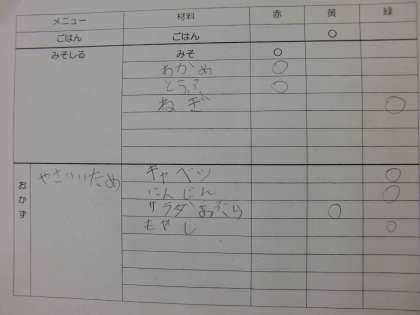 メニュー 材料 赤 黄 緑
ごはん ごはん ○
みそしる みそ ○
わかめ ○
とうふ ○
ねぎ ○
おかず やさいいため キャベツ ○
にんじん ○
サラダあぶら ○
もやし ○